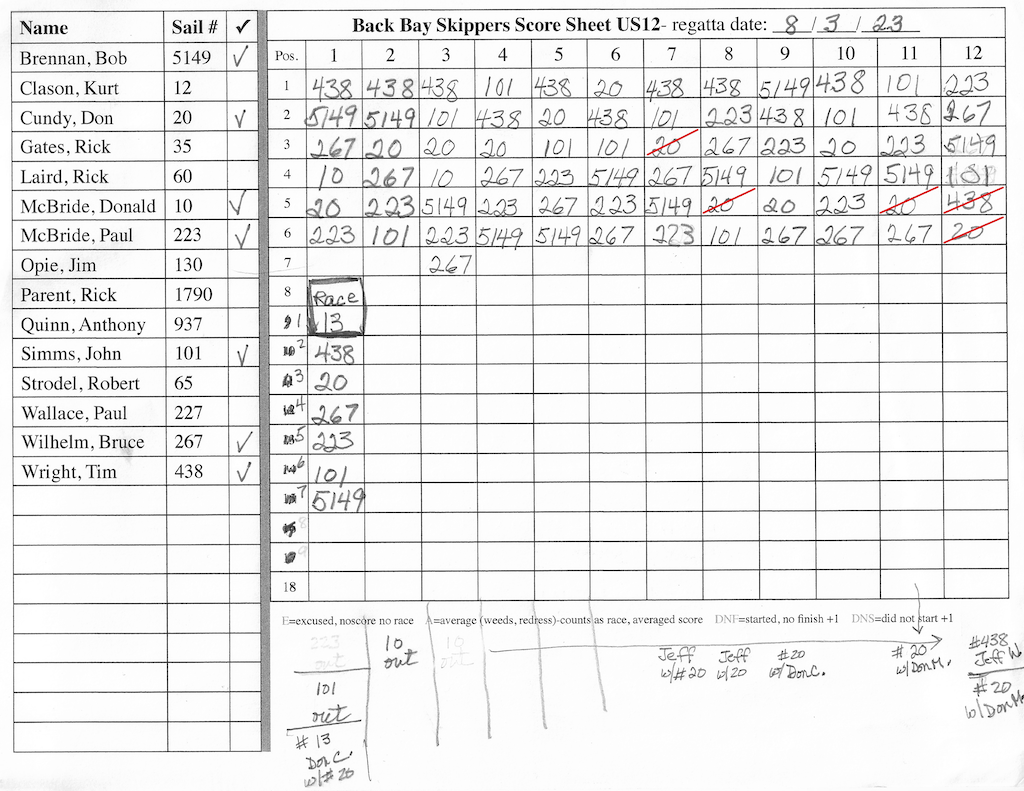 Name Sail # ✓ Back Bay Skippers Score Sheet US12- regatta date: 8 / 3 / 23
Brennan, Bob 5149 ✓ Pos. 1 2 3 4 5 6 7 8 9 10 11 12
Clason, Kurt 12 1 438 438 438 101 438 20 438 438 5149 438 101 223
Cundy, Don 20 ✓ 2 5149 5149 101 438 20 438 101 223 438 101 438 267
Gates, Rick 35 3 267 20 20 20 101 101 20 267 223 20 223 5149
Laird, Rick 60 4 10 267 10 267 223 5149 267 5149 101 5149 5149 101
McBride, Donald 10 ✓ 5 20 223 5149 223 267 223 5149 20 20 223 20 438
McBride, Paul 223 ✓ 6 223 101 223 5149 5149 267 223 101 267 267 267 20
Opie, Jim 130 7 267
Parent, Rick 1790 8 Race
Quinn, Anthony 937 1 13
Simms, John 101 ✓ 2 438
Strodel, Robert 65 3 20
Wallace, Paul 227 4 267
Wilhelm, Bruce 267 ✓ 5 223
Wright, Tim 438 ✓ 6 101
7 5149
8
9
18
E=excused, noscore no race A=average (weeds, redress)-counts as race, averaged score DNF=started, no finish +1 DNS=did not start +1
223 10 10
out out out
Jeff Jeff #20 # 20 #438
w/#20 w/20 w/Don C. w/Don M. Jeff W.
101 # 20
out w/Don M.
# 13
Don C.
w/# 20